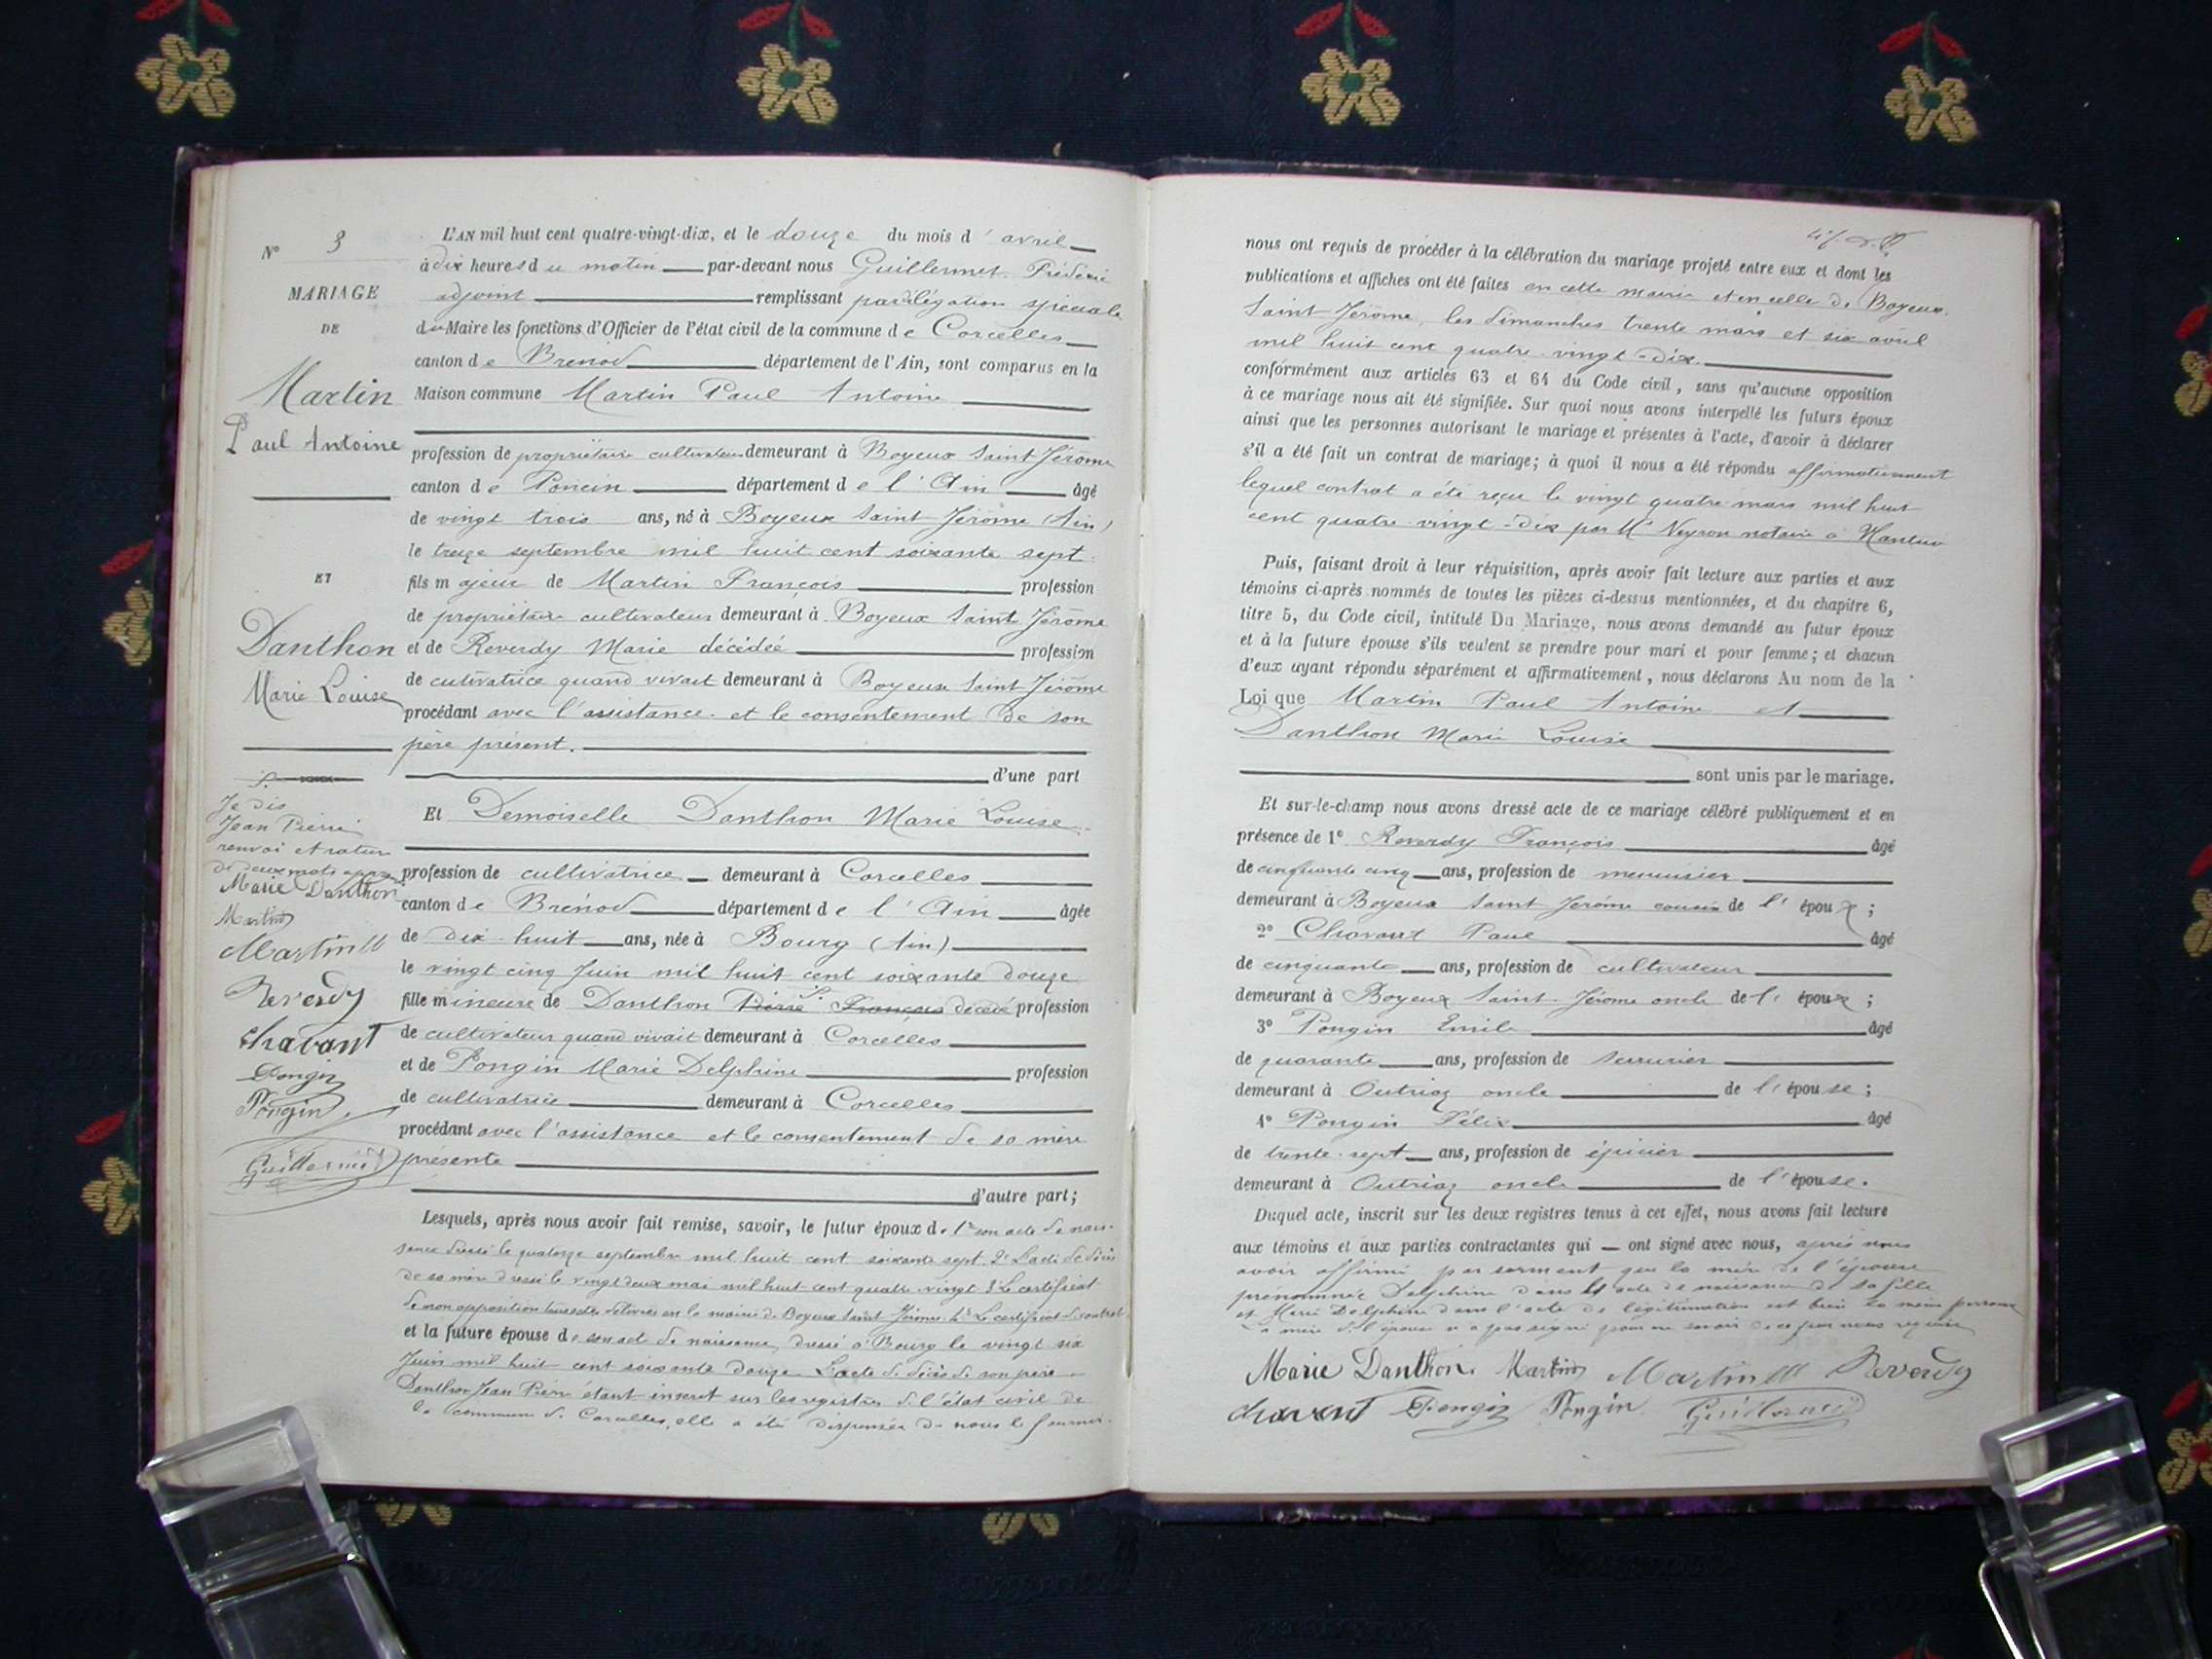 N° 3
MARIAGE
DE
Martin
Paul Antoine
ET
Danthon
Marie Louise
Je dis
Jean Pierre
renvoi et rature
de deux mots
Marie Danthon
Martin
Martin
Reverdy
Chavant
Pongin
Pongin
Guillermet
L'AN mil huit cent quatre-vingt-dix, et le douze du mois d'avril
à dix heures du matin par-devant nous Guillermet Frédéric
adjoint remplissant par délégation spéciale
du Maire les fonctions d'Officier de l'état civil de la commune de Corcelles
canton de Brénod département de l'Ain, sont comparus en la
Maison commune Martin Paul Antoine
profession de propriétaire cultivateur demeurant à Boyeux Saint Jérôme
canton de Poncin département de l'Ain âgé
de vingt trois ans, né à Boyeux Saint Jérôme (Ain)
le treize septembre mil huit cent soixante sept
fils majeur de Martin François profession
de propriétaire cultivateur demeurant à Boyeux Saint Jérôme
et de Reverdy Marie décédée profession
de cultivatrice quand vivait demeurant à Boyeux Saint Jérôme
procédant avec l'assistance et le consentement de son
père présent.
d'une part
Et Demoiselle Danthon Marie Louise
profession de cultivatrice demeurant à Corcelles
canton de Brénod département de l'Ain âgée
de dix-huit ans, née à Bourg (Ain)
le vingt cinq Juin mil huit cent soixante douze
fille mineure de Danthon Pierre François décédé profession
de cultivateur quand vivait demeurant à Corcelles
et de Pongin Marie Delphine profession
de cultivatrice demeurant à Corcelles
procédant avec l'assistance et le consentement de sa mère
présente
d'autre part;
Lesquels, après nous avoir fait remise, savoir, le futur époux de 1° son acte de nais-
sance dressé le quatorze septembre mil huit cent soixante sept 2° L'acte de décès
de sa mère dressé le vingt deux mai mil huit cent quatre vingt 3° Le certificat
de non opposition délivré en la mairie de Boyeux Saint Jérôme 4° Le certificat de contrat
et la future épouse de son acte de naissance, dressé à Bourg le vingt six
Juin mil huit cent soixante douze. L'acte de décès de son père
Danthon Jean Pierre étant inscrit sur les registres de l'état civil de
la commune de Corcelles, elle a été dispensée de nous le fournir.
nous ont requis de procéder à la célébration du mariage projeté entre eux et dont les
publications et affiches ont été faites en cette mairie et en celle de Boyeux
Saint Jérôme, les dimanches trente mars et six avril
mil huit cent quatre-vingt-dix
conformément aux articles 63 et 64 du Code civil, sans qu'aucune opposition
à ce mariage nous ait été signifiée. Sur quoi nous avons interpellé les futurs époux
ainsi que les personnes autorisant le mariage et présentes à l'acte, d'avoir à déclarer
s'il a été fait un contrat de mariage; à quoi il nous a été répondu affirmativement
lequel contrat a été reçu le vingt quatre mars mil huit
cent quatre-vingt-dix par Me Neyron notaire à Nantua
Puis, faisant droit à leur réquisition, après avoir fait lecture aux parties et aux
témoins ci-après nommés de toutes les pièces ci-dessus mentionnées, et du chapitre 6,
titre 5, du Code civil, intitulé Du Mariage, nous avons demandé au futur époux
et à la future épouse s'ils veulent se prendre pour mari et pour femme; et chacun
d'eux ayant répondu séparément et affirmativement, nous déclarons Au nom de la
Loi que Martin Paul Antoine et
Danthon Marie Louise
sont unis par le mariage.
Et sur-le-champ nous avons dressé acte de ce mariage célébré publiquement et en
présence de 1° Reverdy François âgé
de cinquante cinq ans, profession de menuisier
demeurant à Boyeux Saint Jérôme cousin de l'époux;
2° Chavant Paul âgé
de cinquante ans, profession de cultivateur
demeurant à Boyeux Saint-Jérôme oncle de l'époux;
3° Pongin Emile âgé
de quarante ans, profession de serrurier
demeurant à Outriaz oncle de l'épouse;
4° Pongin Félix âgé
de trente-sept ans, profession de épicier
demeurant à Outriaz oncle de l'épouse.
Duquel acte, inscrit sur les deux registres tenus à cet effet, nous avons fait lecture
aux témoins et aux parties contractantes qui ont signé avec nous, après nous
avoir affirmé par serment que la mère de l'épouse
prénommée Delphine dans l'acte de naissance de sa fille
et Marie Delphine dans l'acte de légitimation est bien la même personne
La mère de l'épouse n'a pas signé pour ne savoir de ce par nous requise
Marie Danthon Martin Martin Reverdy
Chavant Pongin Pongin Guillermet